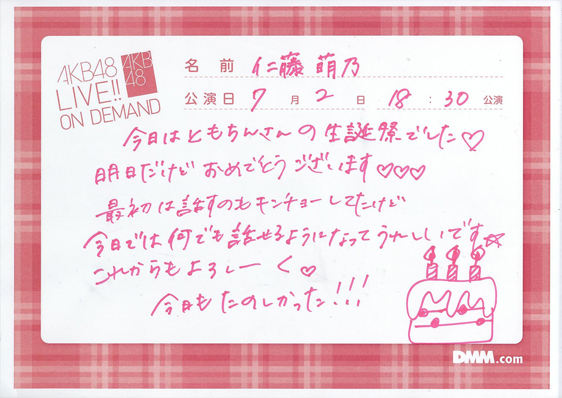 AKB48
LIVE!!
ON DEMAND
AKB
48
名前 仁藤 萌乃
公演日 7月2日 18:30公演
今日はともちんさんの生誕祭でした♡
明日だけど おめでとうございます♡♡♡
最初は話すのもキンチョーしてたけど
今日では何でも話せるようになってうれしいです☆
これからもよろしーく♡
今日もたのしかった!!!
DMM.com